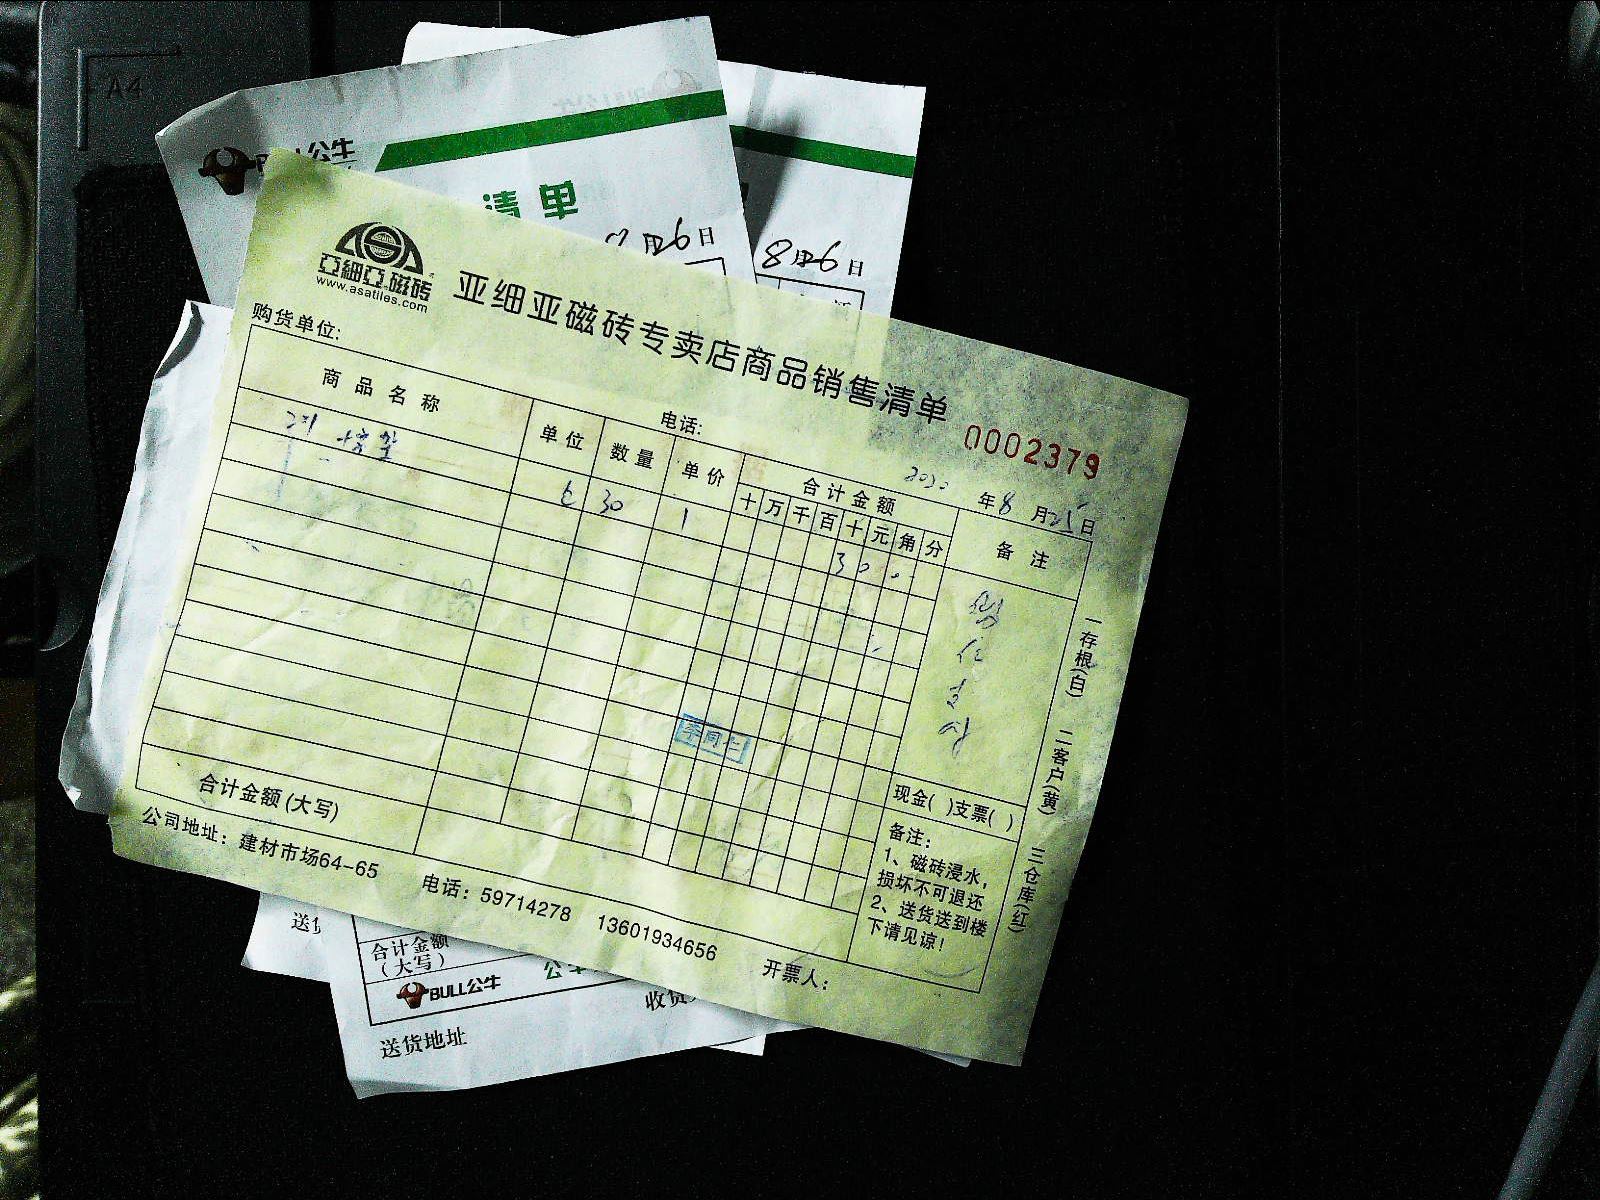 A4
BULL公牛
清单
月6日
8月6日
亞細亞磁砖
www.asatiles.com
亚细亚磁砖专卖店商品销售清单
0002379
购货单位:
电话:
年8月25日
商品名称
单位
数量
单价
合计金额
备注
十万千百十元角分
30
1
30
李同仁
现金( )支票( )
合计金额(大写)
备注:
1、磁砖浸水,
损坏不可退还
2、送货送到楼
下请见谅!
一存根(白)
二客户(黄)
三仓库(红)
公司地址:建材市场64-65
电话:59714278 13601934656
开票人:
合计金额
(大写)
BULL公牛
送货地址